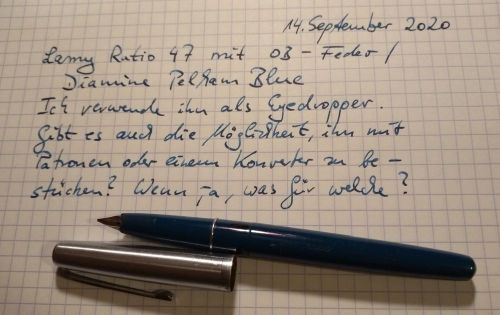 14. September 2020
Lamy Ratio 47 mit OB-Feder /
Diamine Pelham Blue
Ich verwende ihn als Eyedropper.
Gibt es auch die Möglichkeit, ihn mit
Patronen oder einem Konverter zu be-
stücken? Wenn ja, was für welche?